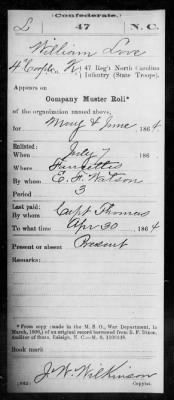 (Confederate.)
L 47 N.C.
William Love
4" Corpl Co. K, 47 Reg't North Carolina
Infantry (State Troops).
Appears on
Company Muster Roll*
of the organization named above,
for May & June, 1864
Enlisted:
When July 7, 186
Where
By whom E. F. Watson
Period 3
Last paid:
By whom Capt Thomas
To what time Apr 30, 1864
Present or absent Present
Remarks:
*From copy (made in the M. S. O., War Department, in
March, 1898,) of an original record borrowed from
Auditor of State, Raleigh, N. C.—M. S.
Book mark:
J. W. Wilkinson
Copyist.